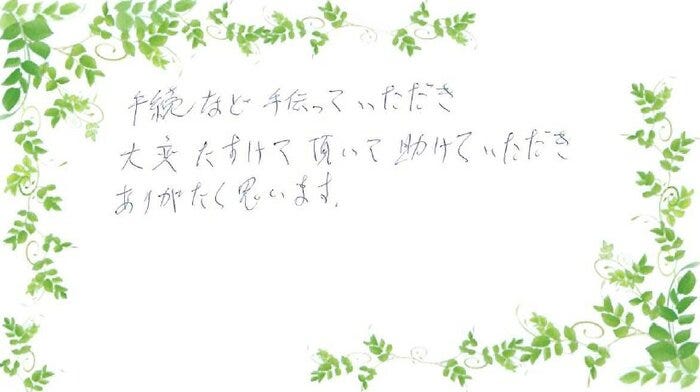 手続など手伝っていただき
大変たすけて頂いて助けていただき
ありがたく思います。